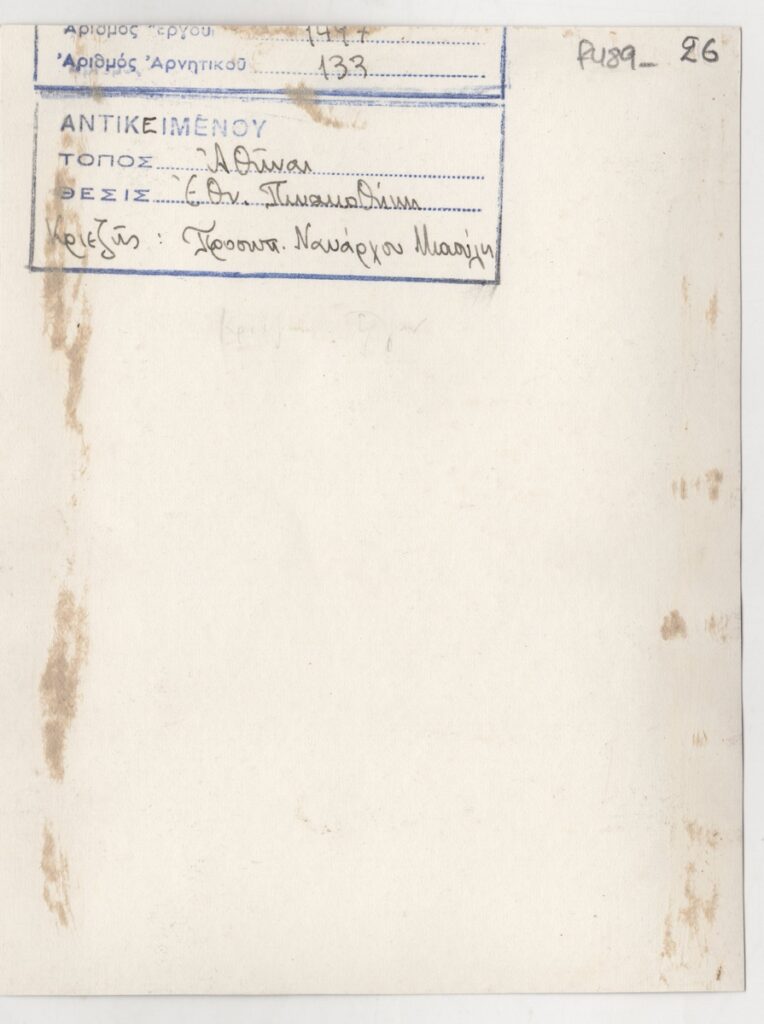 Ἀριθμός Ἔργου 1497
Ἀριθμός Ἀρνητικοῦ 133
ΑΝΤΙΚΕΙΜΕΝΟΥ
ΤΟΠΟΣ Ἀθῆναι
ΘΕΣΙΣ Ἐθν. Πινακοθήκη
Κριεζῆς : Προσωπ. Ναυάρχου Μιαούλη
26